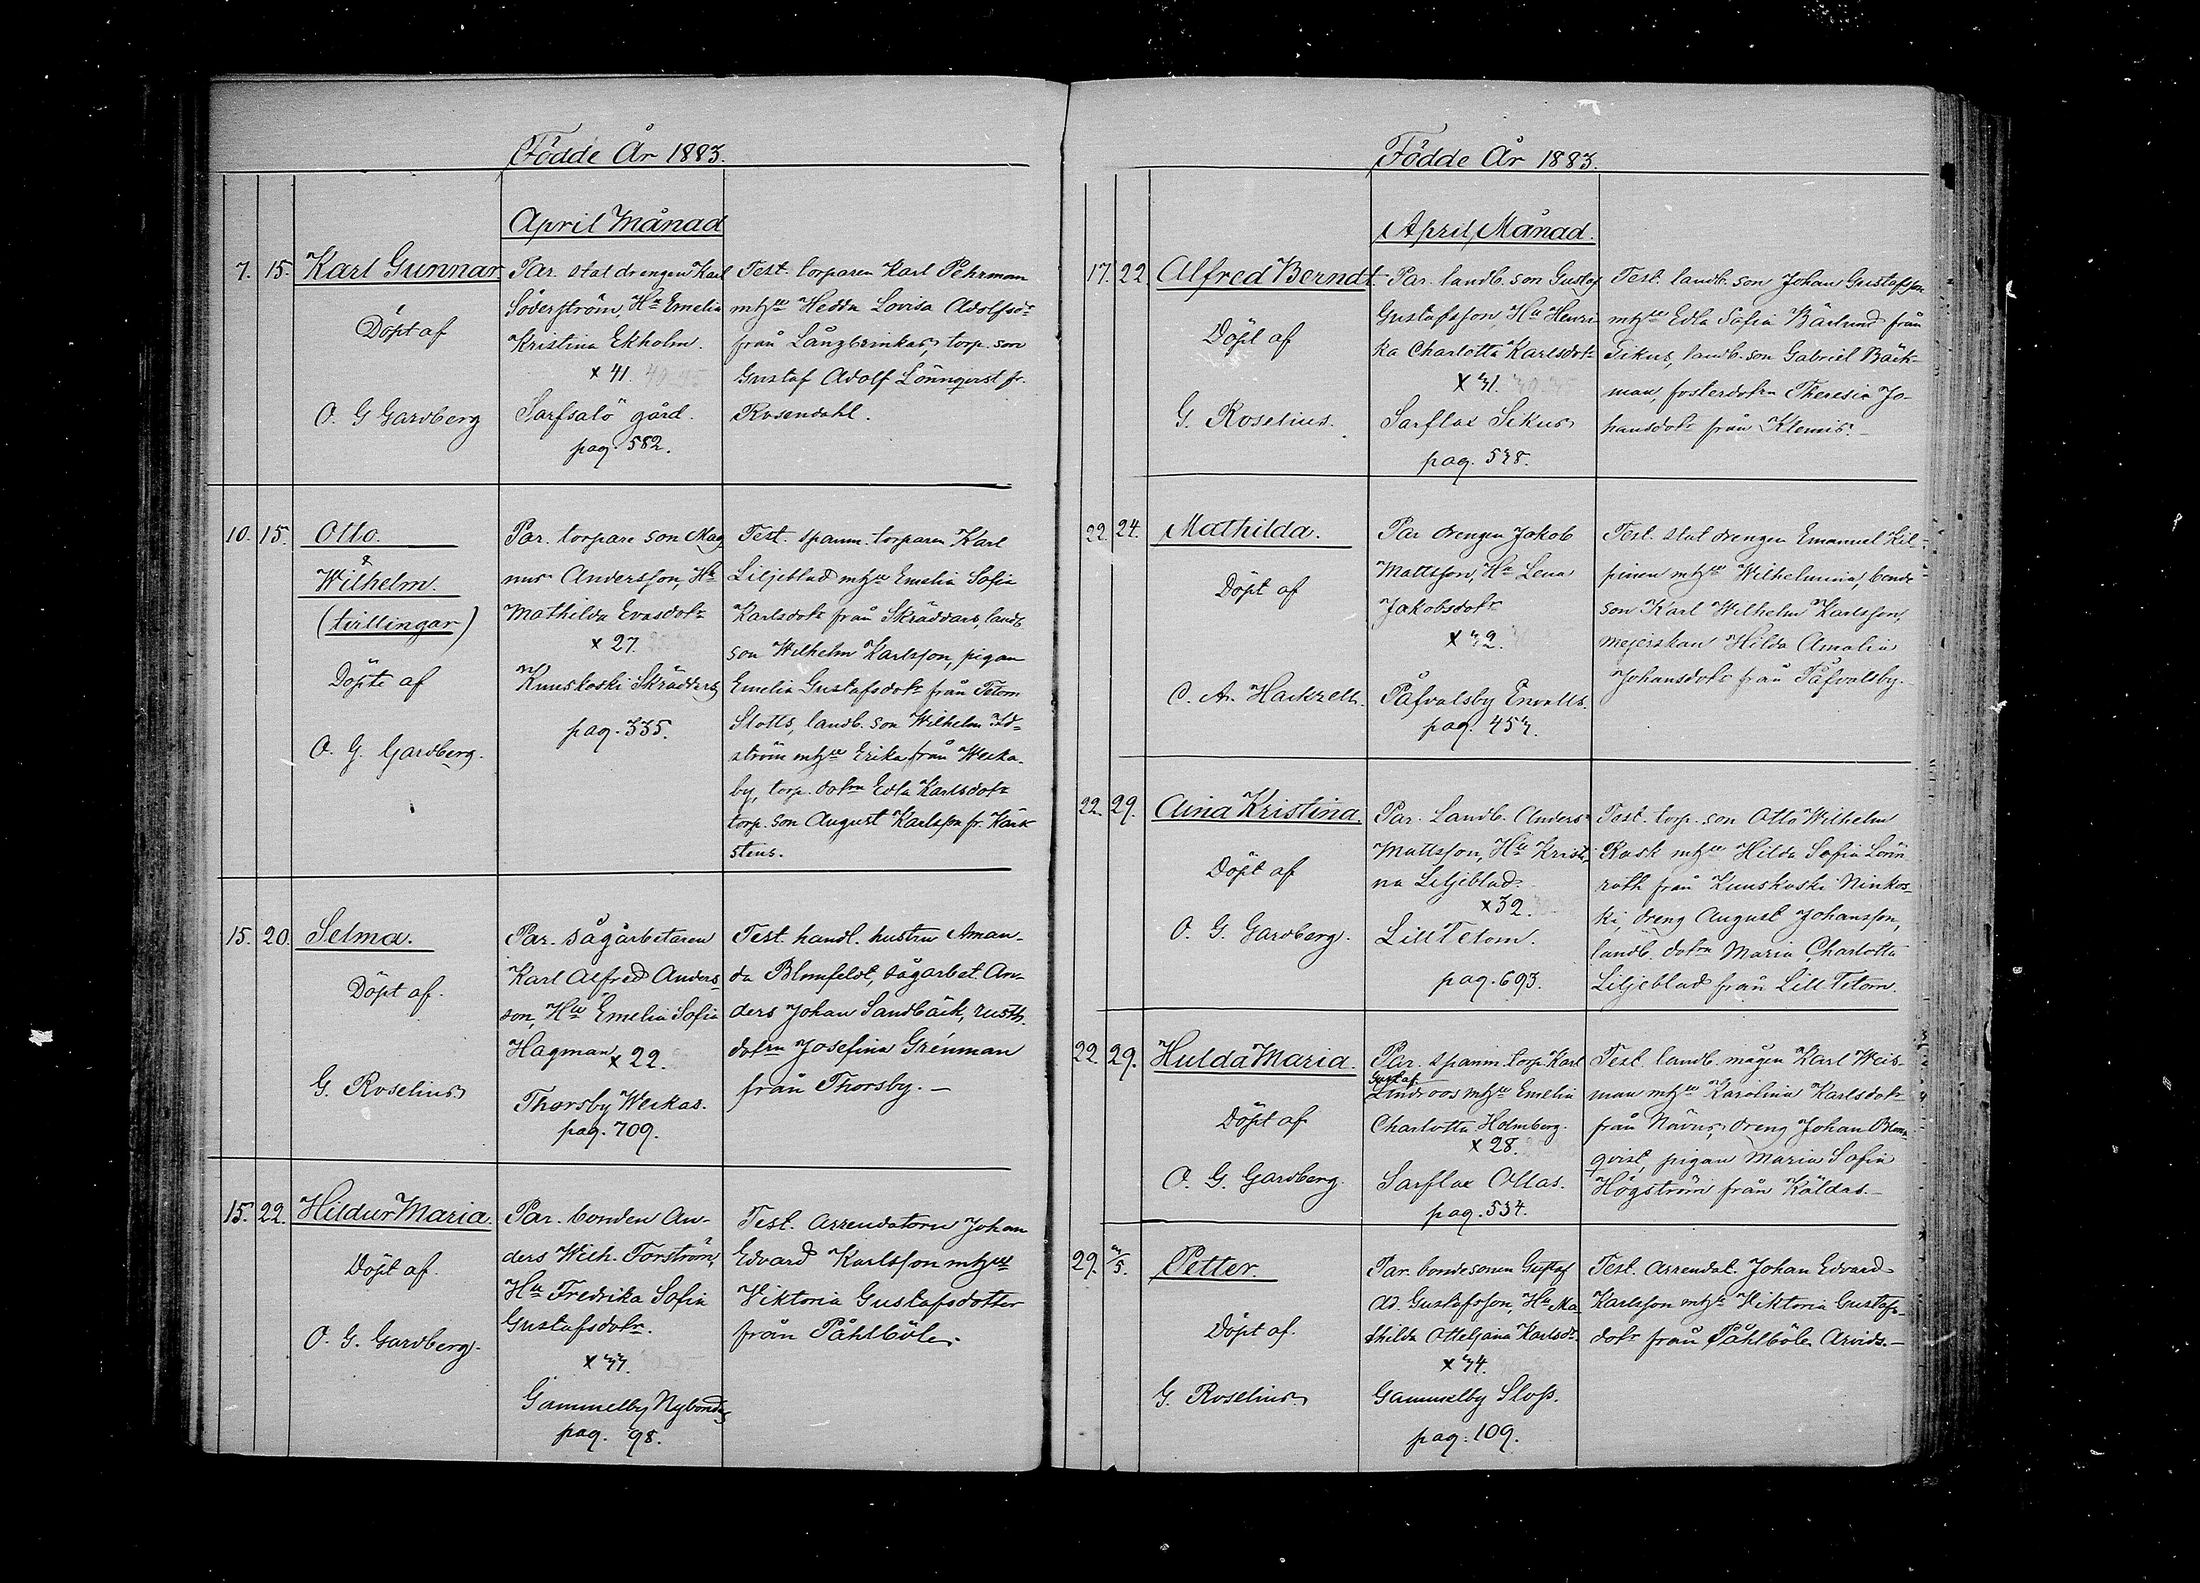 Födde År 1883.
April Månad
7. 15. Karl Gunnar
Döpt af
O. G Gardberg
Par. stat drengen Karl
Söderström, Hu Emelia
Kristina Ekholm.
x 41. 40-45
Sarfsalö gård.
pag. 582.
Test. torparen Karl Pehrman
mhge Hedda Lovisa Adolfsdr
från Långbrinkas, torp. son
Gustaf Adolf Lönnqvist fr.
Rosendahl.
10. 15. Otto.
&
Wilhelm.
(tvillingar)
Döpte af
O. G. Gardberg.
Par. torpare son Mag
nus Andersson, Hu
Mathilda Evasdotr
x 27.
Kuuskoski Skräddars
pag. 335.
Test. spanm. torparen Karl
Liljeblad mhge Emelia Sofia
Karlsdotr från Skräddars, landb.
son Wilhelm Karlsson, pigan
Emelia Gustafsdotr från Tetom
Slotts, landb. son Wilhelm
ström mhge Erika från Wecka-
by, torp. dotrn Edla Karlsdotr
torp. son August Karlsson fr. Kark
stens.
15. 20. Selma.
Döpt af.
G. Roselius
Par. sågarbetaren
Karl Alfred Anders
son, Hu Emelia Sofia
Hagman x 22.
Thorsby Weckas.
pag. 709.
Test. handl. hustru Aman-
da Blomfeldt, sågarbet. An-
ders Johan Sandbäck, rusth.
dotrn Josefina Grénman
från Thorsby. —
15. 22. Hildur Maria.
Döpt af.
O. G. Gardberg.
Par. bonden An-
ders Wilh. Forström,
Hu Fredrika Sofia
Gustafsdotr.
x 33.
Gammelby Nybondas
pag. 98.
Test. arrendatorn Johan
Edvard Karlsson mhge
Viktoria Gustafsdotter
från Påhlböle.
Födde År 1883.
April Månad.
17. 22 Alfred Berndt
Döpt af
G. Roselius.
Par. landb. son Gustaf
Gustafsson, Hu Henri
ka Charlotta Karlsdotr
x 31.
Sarflax Sikus
pag. 538.
Test. landb. son Johan Gustafsson
mhge Edla Sofia Bärlund från
Sikus, landb. son Gabriel Bäck-
man, fosterdotrn Theresia Jo-
hansdotr från Klemis. —
22. 24. Mathilda.
Döpt af
C. A. Hackzell.
Par drengen Jakob
Mattsson, Hu Lena
Jakobsdotr
x 32.
Påfvalsby Envalls.
pag. 453.
Test. stat drengen Emanuel Kil-
pinen mhge Wilhelmina, bonde
son Karl Wilhelm Karlsson,
mejerskan Hilda Amalia
Johansdotr från Påfvalsby.
22. 29. Aina Kristina.
Döpt af
O. G. Gardberg.
Par. Landb. Anders
Mattsson, Hu Kristi
na Liljeblad.
x 32.
Lill Tetom.
pag. 693.
Test. torp. son Otto Wilhelm
Rask mhge Hilda Sofia Lönn
roth från Kuuskoski Ninkos-
ki, dreng August Johansson,
landb. dotrn Maria Charlotta
Liljeblad från Lill Tetom.
22 29. Hulda Maria.
Döpt af
O. G. Gardberg.
Par. spanm. torp. Karl
Gustaf
Lindroos mhge Emelia
Charlotta Holmberg.
x 28.
Sarflax Ottas.
pag. 534.
Test. landb. mågen Karl Weis
man mhge Karolina Karlsdotr
från Nävers, dreng Johan Blom
qvist, pigan Maria Sofia
Högström från Käldas. —
29. /5. Petter.
Döpt af.
G. Roselius.
Par. bondesonen Gustaf
Ad. Gustafsson, Hu Ma
thilda Otteljana Karlsdr
x 34.
Gammelby Sloss.
pag. 109.
Test. arrendat. Johan Edvard
Karlsson mhge Viktoria Gustafs-
dotr från Påhlböle Arvids. —